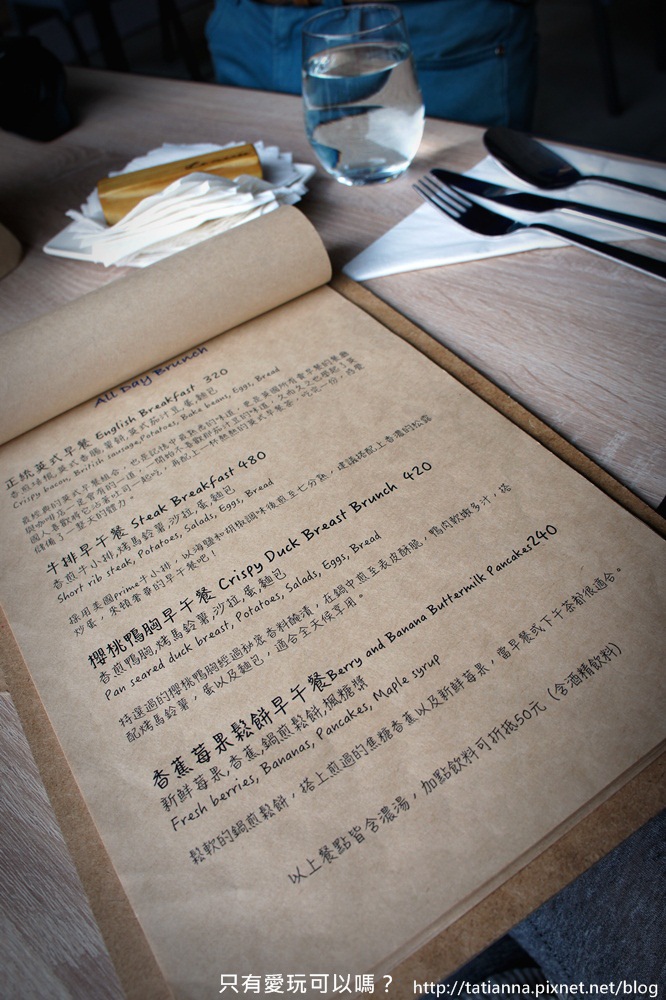 All Day Brunch
正統英式早餐 English Breakfast 320
香煎培根,英式香腸,薯餅,英式茄汁豆,蛋,麵包
Crispy bacon, British sausage,Potatoes, Bake beans, Eggs, Bread
牛排早午餐 Steak Breakfast 480
香煎牛小排,烤馬鈴薯,沙拉,蛋,麵包
Short rib steak, Potatoes, Salads, Eggs, Bread
採用美國Prime牛小排，以海鹽和胡椒調味後煎至七分熟，建議搭配上香濃的松露
炒蛋，來頓奢華的早午餐吧！
櫻桃鴨胸早午餐 Crispy Duck Breast Brunch 420
香煎鴨胸,烤馬鈴薯,沙拉,蛋,麵包
Pan seared duck breast, Potatoes, Salads, Eggs, Bread
特選過的櫻桃鴨胸經過秘密香料醃漬，在鍋中煎至表皮酥脆，鴨肉軟嫩多汁，搭
配烤馬鈴薯，蛋以及麵包，適合全天候享用。
香蕉莓果鬆餅早午餐Berry and Banana Buttermilk Pancakes240
新鮮莓果,香蕉,鍋煎鬆餅,楓糖漿
Fresh berries, Bananas, Pancakes, Maple syrup
鬆軟的鍋煎鬆餅，搭上煎過的焦糖香蕉以及新鮮莓果，當早餐或下午茶都很適合。
以上餐點皆含濃湯，加點飲料可折抵50元 (含酒精飲料)
只有愛玩可以嗎？ http://tatianna.pixnet.net/blog